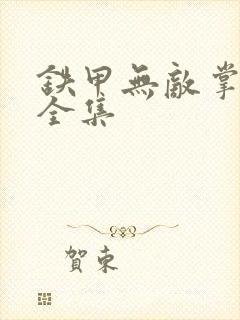 鉄甲無敵掌
全集
賀東